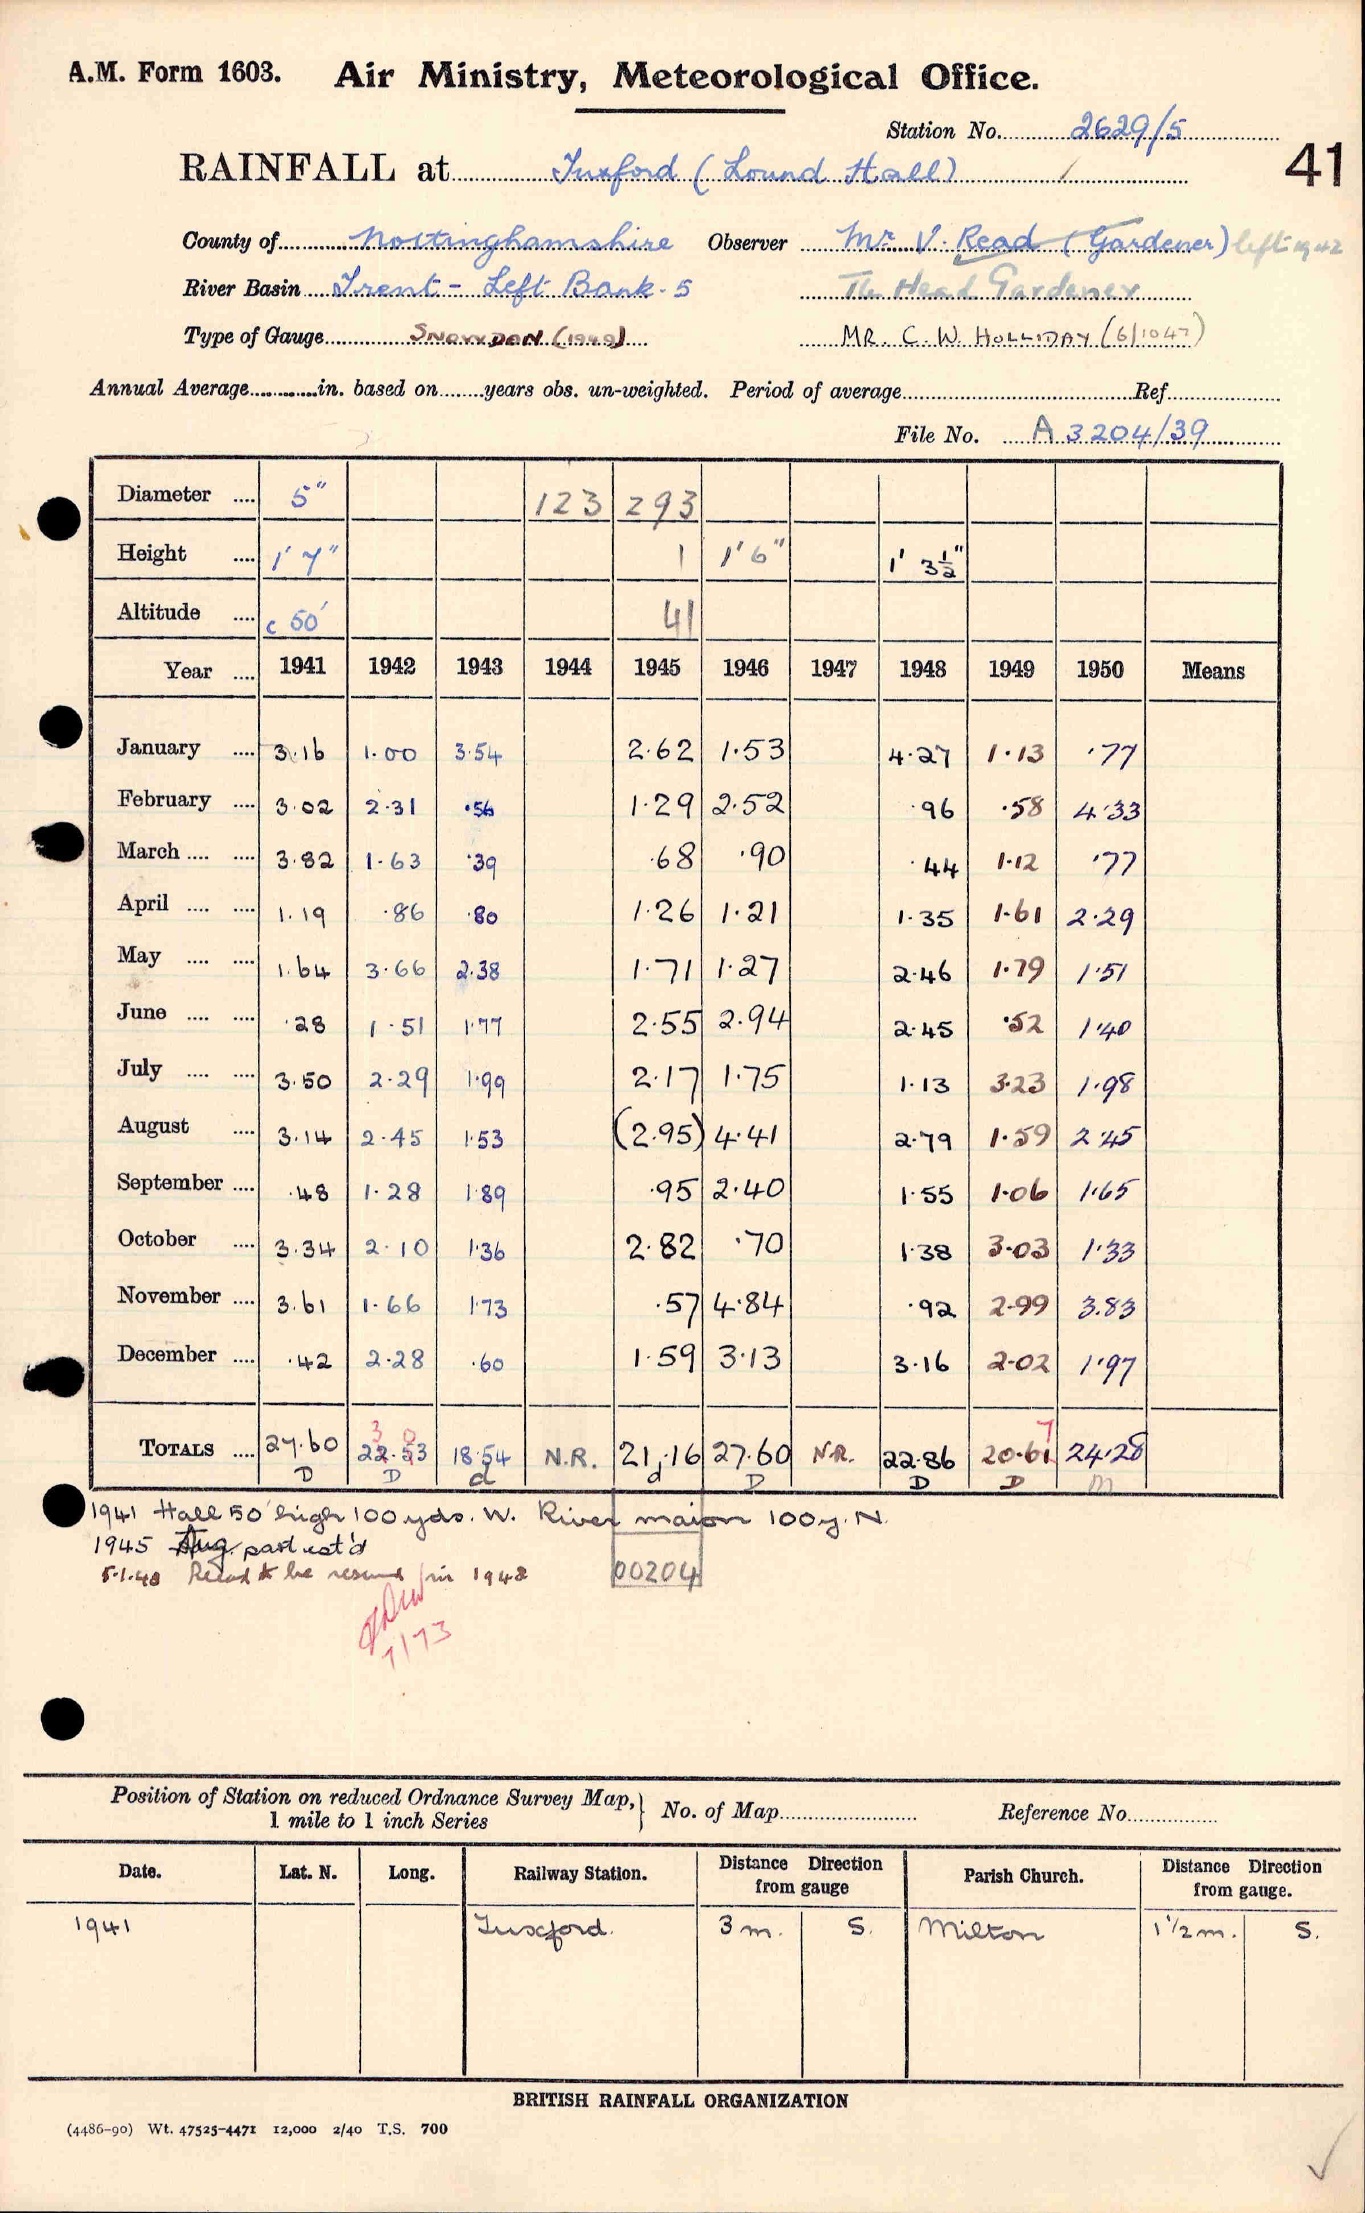 A.M. Form 1603. Air Ministry, Meteorological Office.
Station No. 2629/5
41
RAINFALL at Tuxford (Lound Hall)
County of Nottinghamshire Observer Mr V. Read (Gardener) left 1942
River Basin Trent - Left Bank - 5 The Head Gardener
Type of Gauge SNOWDON (1949) MR. C. W. HOLLIDAY (6/1047)
Annual Average in. based on years obs. un-weighted. Period of average Ref
File No. A 3204/39
Diameter 5" 123 293
Height 1' 7" 1 1' 6" 1' 3½"
Altitude c 50' 41
Year 1941 1942 1943 1944 1945 1946 1947 1948 1949 1950 Means
January 3.16 1.00 3.54 2.62 1.53 4.27 1.13 .77
February 3.02 2.31 .56 1.29 2.52 .96 .58 4.33
March 3.82 1.63 .39 .68 .90 .44 1.12 .77
April 1.19 .86 .80 1.26 1.21 1.35 1.61 2.29
May 1.64 3.66 2.38 1.71 1.27 2.46 1.79 1.51
June .28 1.51 1.77 2.55 2.94 2.45 .52 1.40
July 3.50 2.29 1.99 2.17 1.75 1.13 3.23 1.98
August 3.14 2.45 1.53 (2.95) 4.41 2.79 1.59 2.45
September .48 1.28 1.89 .95 2.40 1.55 1.06 1.65
October 3.34 2.10 1.36 2.82 .70 1.38 3.03 1.33
November 3.61 1.66 1.73 .57 4.84 .92 2.99 3.83
December .42 2.28 .60 1.59 3.13 3.16 2.02 1.97
3 0 7
TOTALS 27.60 22.53 18.54 N.R. 21.16 27.60 N.R. 22.86 20.61 24.28
D D d d D D D m
1941 Hall 50' high 100 yds. W. River 100 y. N.
1945 Aug. part est'd
5.1.48 Record to be resumed in 1948
00204
7/73
Position of Station on reduced Ordnance Survey Map, 1 mile to 1 inch Series } No. of Map Reference No.
Date. Lat. N. Long. Railway Station. Distance Direction from gauge Parish Church. Distance Direction from gauge.
1941 Tuxford. 3 m. S. Milton 1 1/2 m. S.
BRITISH RAINFALL ORGANIZATION
(4486-90) Wt. 47525-4471 12,000 2/40 T.S. 700